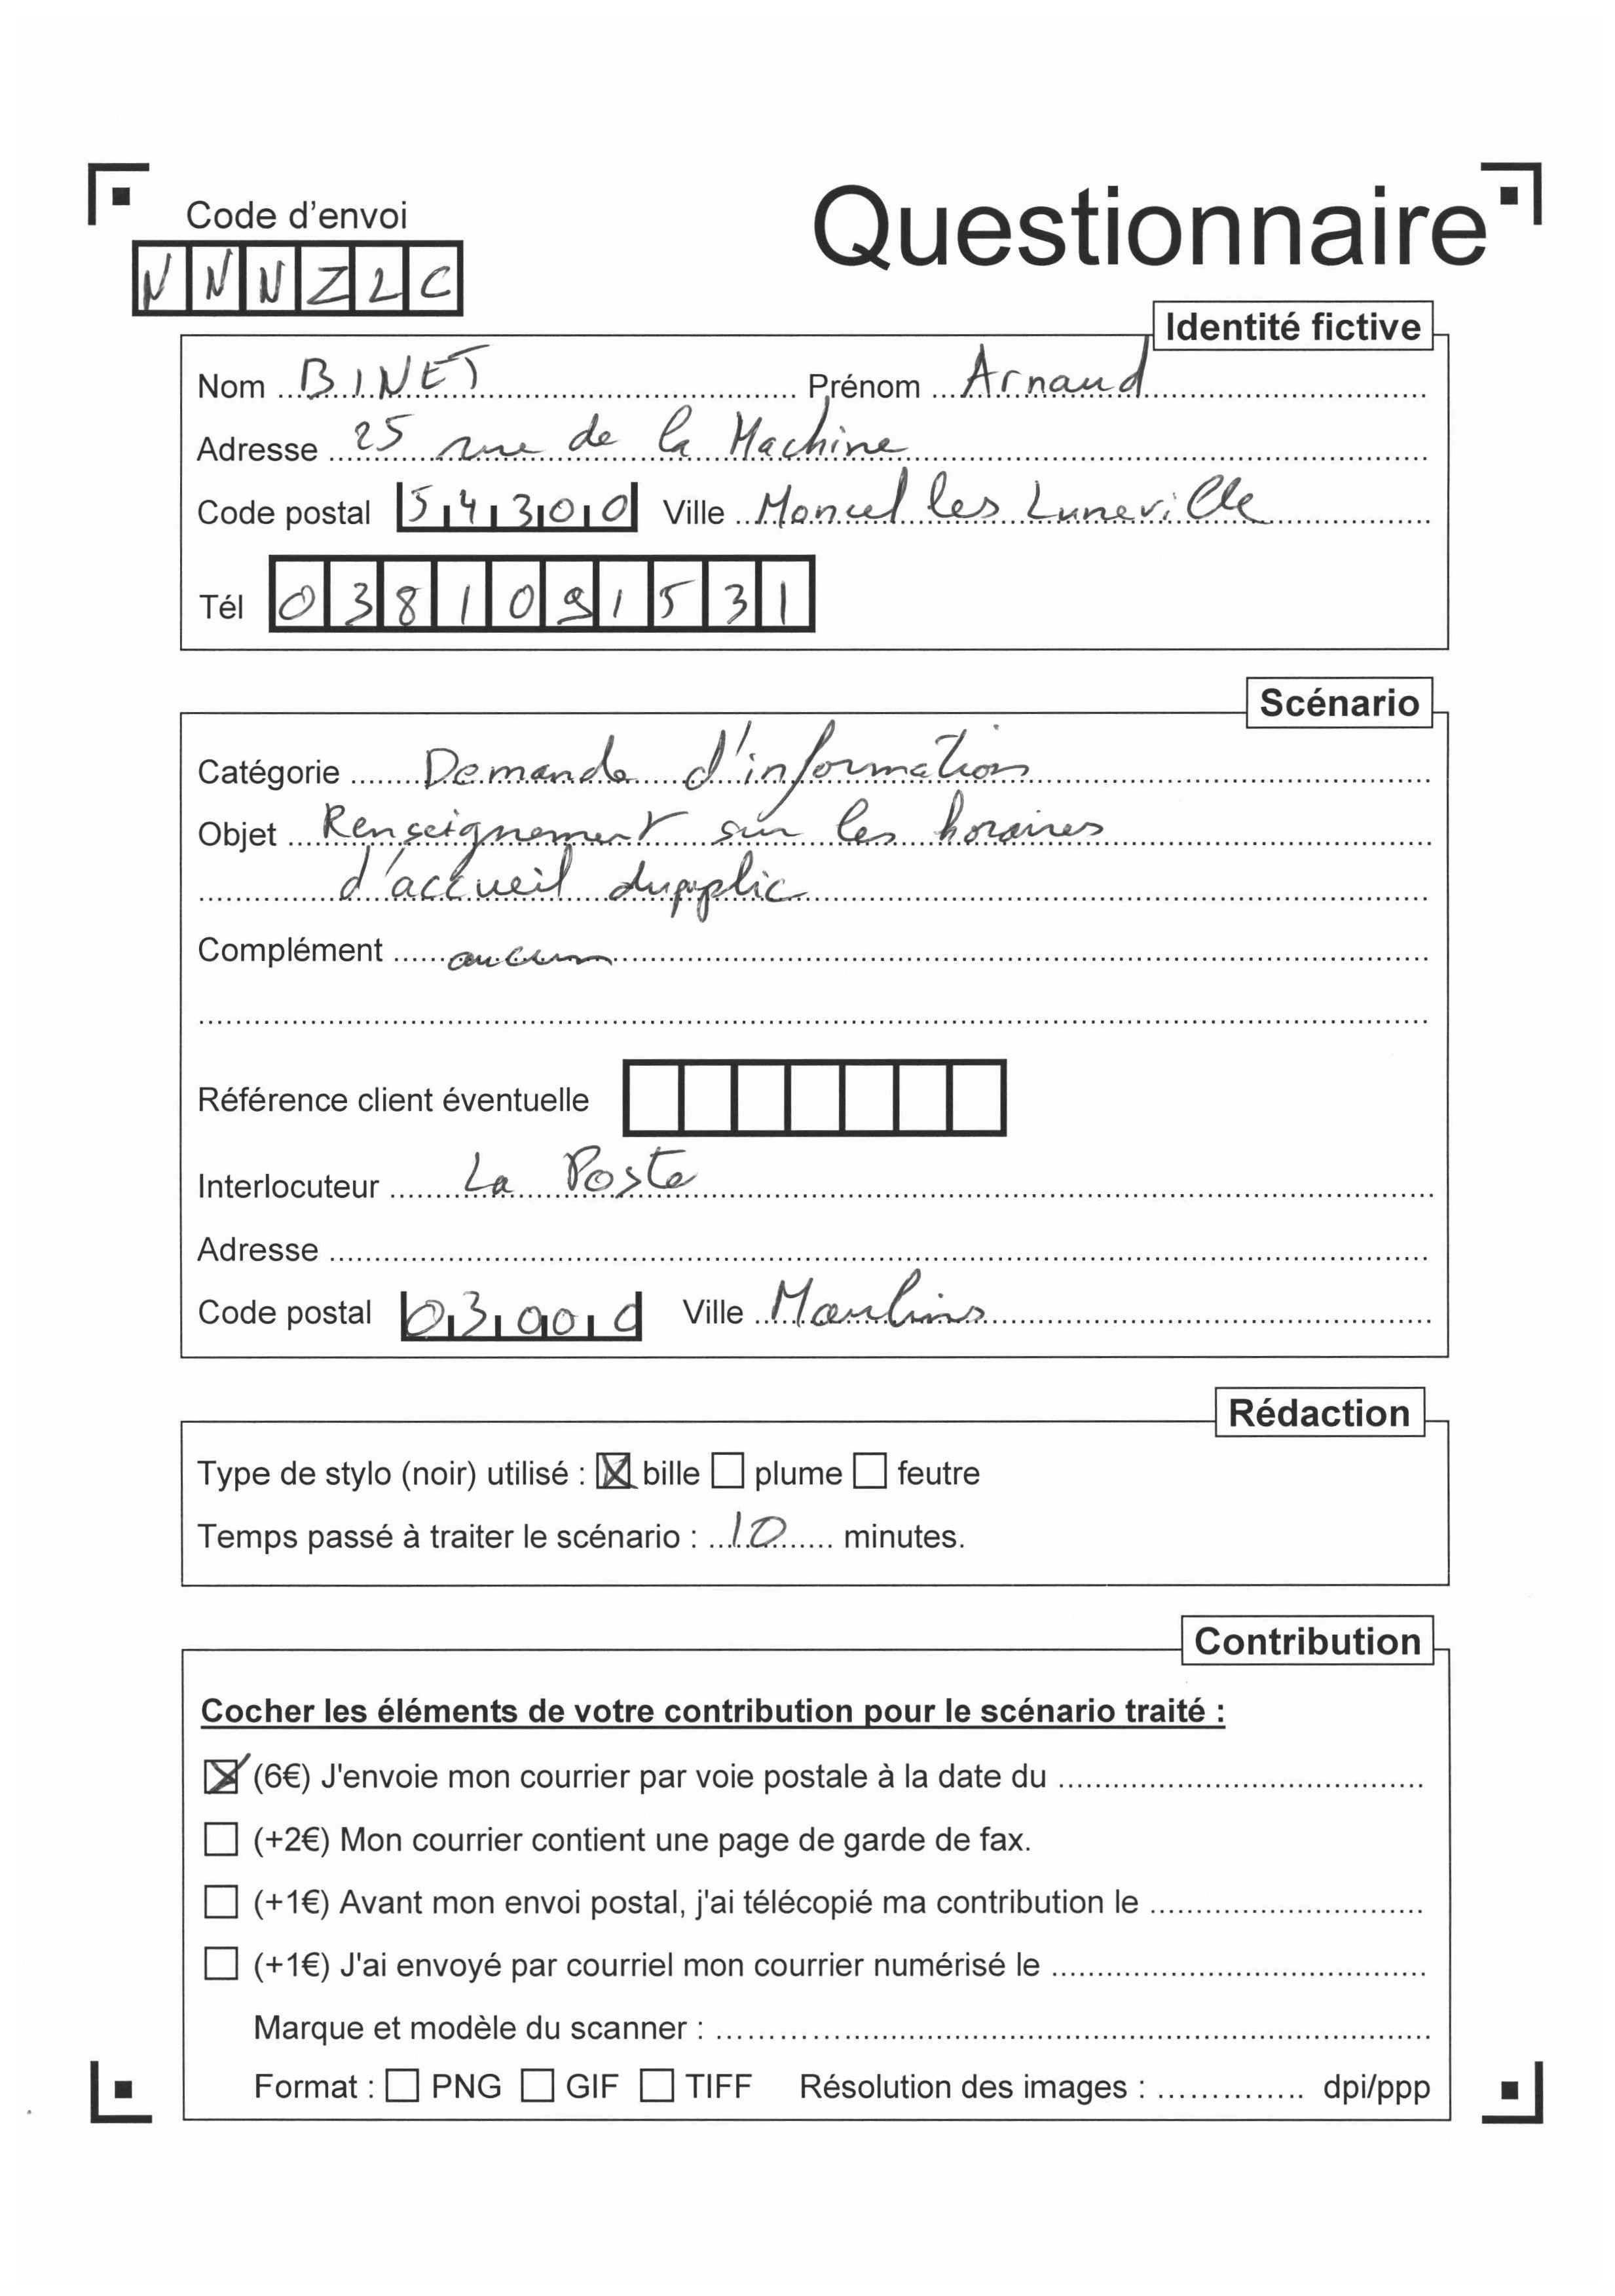 Code d'envoi
Questionnaire
NNNZLC
Identité fictive
Nom BINET Prénom Arnaud
Adresse 25 rue de la Machine
Code postal 54300 Ville Moncel les Luneville
Tél 0381091531
Scénario
Catégorie Demande d'information
Objet Renseignement sur les horaires
d'accueil du
Complément aucun
Référence client éventuelle
Interlocuteur La Poste
Adresse
Code postal 03000 Ville Moulins
Rédaction
Type de stylo (noir) utilisé : bille plume feutre
Temps passé à traiter le scénario : 10 minutes.
Contribution
Cocher les éléments de votre contribution pour le scénario traité :
(6€) J'envoie mon courrier par voie postale à la date du
(+2€) Mon courrier contient une page de garde de fax.
(+1€) Avant mon envoi postal, j'ai télécopié ma contribution le
(+1€) J'ai envoyé par courriel mon courrier numérisé le
Marque et modèle du scanner :
Format : PNG GIF TIFF Résolution des images : dpi/ppp